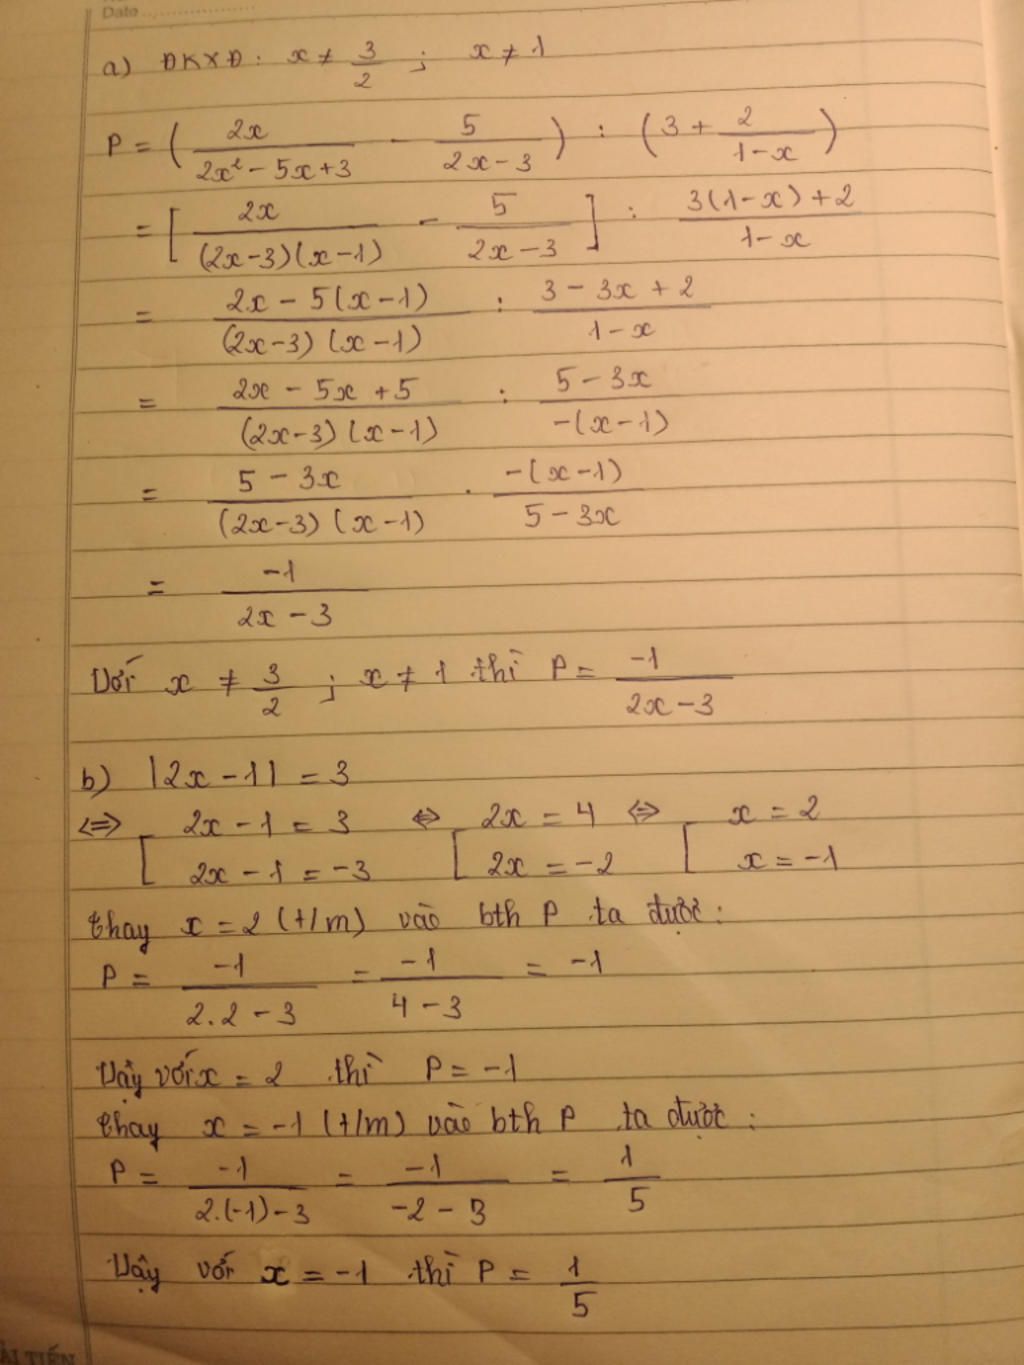 Date
a) ĐKXĐ: x ≠ 3/2 ; x ≠ 1
P = ( 2x/(2x² - 5x + 3) - 5/(2x - 3) ) : ( 3 + 2/(1 - x) )
= [ 2x/((2x-3)(x-1)) - 5/(2x-3) ] : (3(1-x)+2)/(1-x)
= (2x - 5(x-1))/((2x-3)(x-1)) : (3 - 3x + 2)/(1-x)
= (2x - 5x + 5)/((2x-3)(x-1)) : (5 - 3x)/(-(x-1))
= (5 - 3x)/((2x-3)(x-1)) . (-(x-1))/(5 - 3x)
= -1/(2x - 3)
Với x ≠ 3/2 ; x ≠ 1 thì P = -1/(2x-3)
b) |2x - 1| = 3
⇔ [ 2x - 1 = 3 ⇔ [ 2x = 4 ⇔ [ x = 2
2x - 1 = -3 2x = -2 x = -1
thay x = 2 (t/m) vào bth P ta được:
P = -1/(2.2 - 3) = -1/(4 - 3) = -1
Vậy với x = 2 thì P = -1
thay x = -1 (t/m) vào bth P ta được:
P = -1/(2.(-1) - 3) = -1/(-2 - 3) = 1/5
Vậy với x = -1 thì P = 1/5
ẢI TIẾN